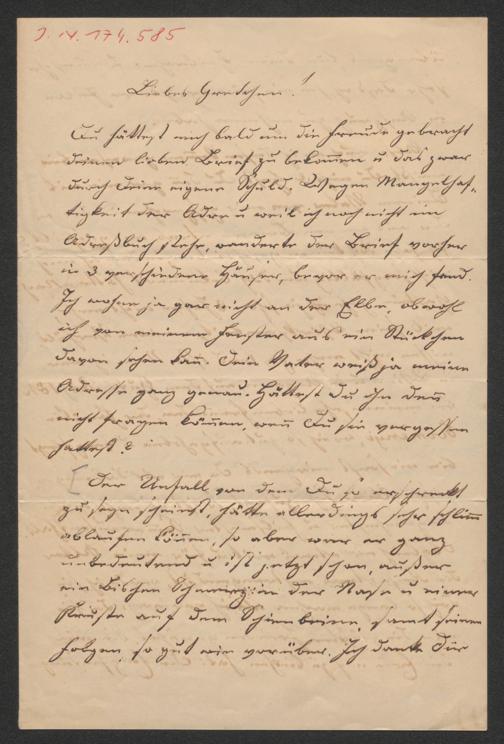 J. N. 174.585
Liebes Gretchen!
Du hättest mich bald um die Freude gebracht
deinen lieben Brief zu bekom̄en u das zwar
durch deine eigene Schuld. Wegen Mangelhaf-
tigkeit der Adre u weil ich noch nicht im
Adreßbuch stehe, wanderte der Brief vorher
in 3 verschiedene Häuser, bevor er mich fand.
Ich wohne ja gar nicht an der Elbe, obwohl
ich von meinem Fenster aus ein Stückchen
davon sehen kan̄. Dein Vater weiß ja meine
Adresse ganz genau. Hättest Du ihn den̄
nicht fragen kön̄en, wen̄ Du sie vergessen
hattest?
[Der Unfall von dem Du so erschreckt
zu seyn scheinst, hätte allerdings sehr schlim̄
ablaufen kön̄en, so aber war er ganz
unbedeutend u ist jetzt schon, außer
ein Bischen Schmerz in der Nase u einer
Kruste auf dem Schienbeine, samt seinen
Folgen, so gut wie vorüber. Ich danke Dir